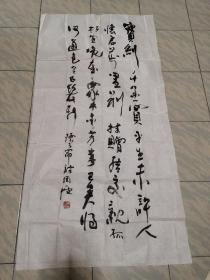 寶劍千金買平生未許人
懷君萬里別持贈結交親孤
松宜晚歲衆木愛芳春已矣將
何道無令白髮新